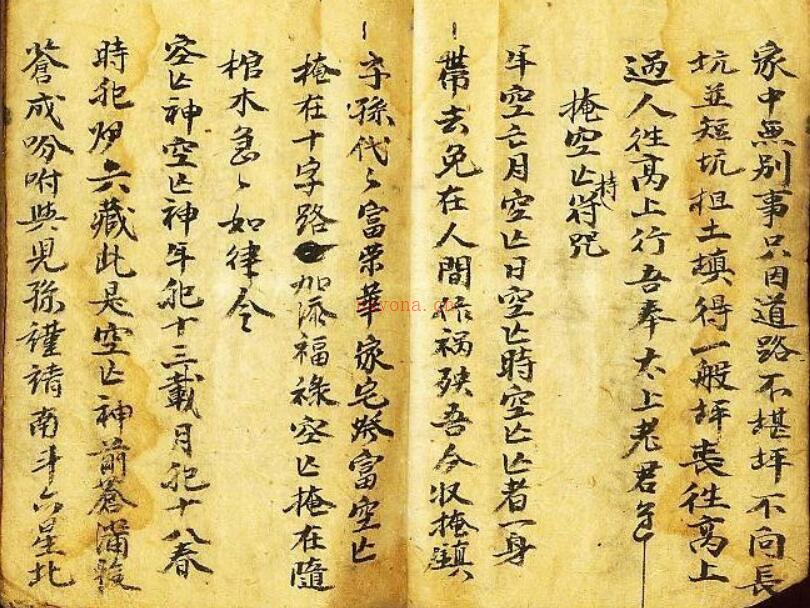 家中無別事只因道路不堪坪不向長
坑並短坑担土填得一般坪喪往高上
過人往高上行吾奉太上老君
掩空亾符咒
持
年空亡月空亾日空亾時空亾亾者一身
一帶去免在人間作禍殃吾今收掩鎮
一子孫代々富荣華家宅 富空亾
掩在十字路 加添福祿空亾掩在隨
棺木急々如律令
空亾神空亾神年犯十三載月犯十八春
時犯 六藏此是空亾神前蒼滿
蒼成吩咐與兒孫謹請南斗六星北